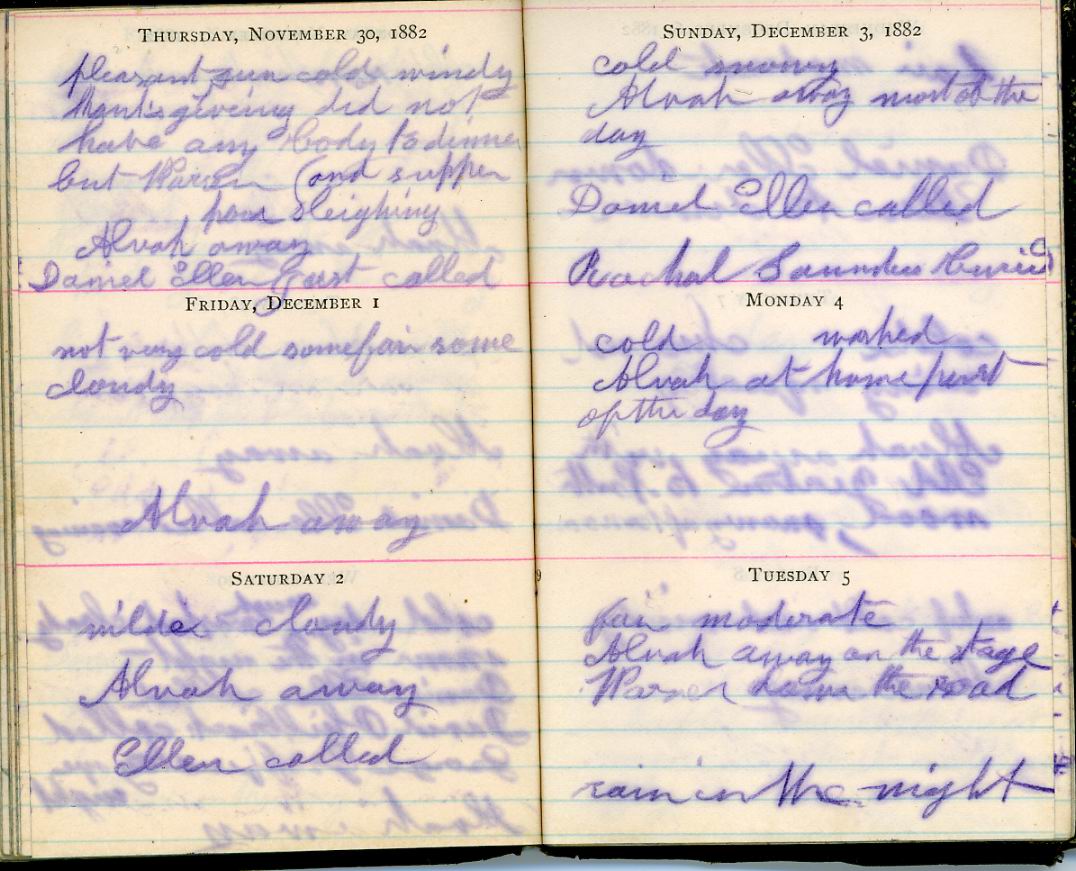 THURSDAY, NOVEMBER 30, 1882
pleasant sun cold windy
thanksgiving did not
have any body to dinner
but Warren (and supper
poor sleighing
Alvah away
Daniel Ellen called
FRIDAY, DECEMBER 1
not very cold some fair some
cloudy
Alvah away
SATURDAY 2
milde cloudy
Alvah away
Ellen called
SUNDAY, DECEMBER 3, 1882
cold snowy
Alvah away most of the
day
Daniel Ellen called
Rachal Saunders buried
MONDAY 4
cold washed
Alvah at home part
of the day
TUESDAY 5
fair moderate
Alvah away on the stage
Warren down the road
rain in the night